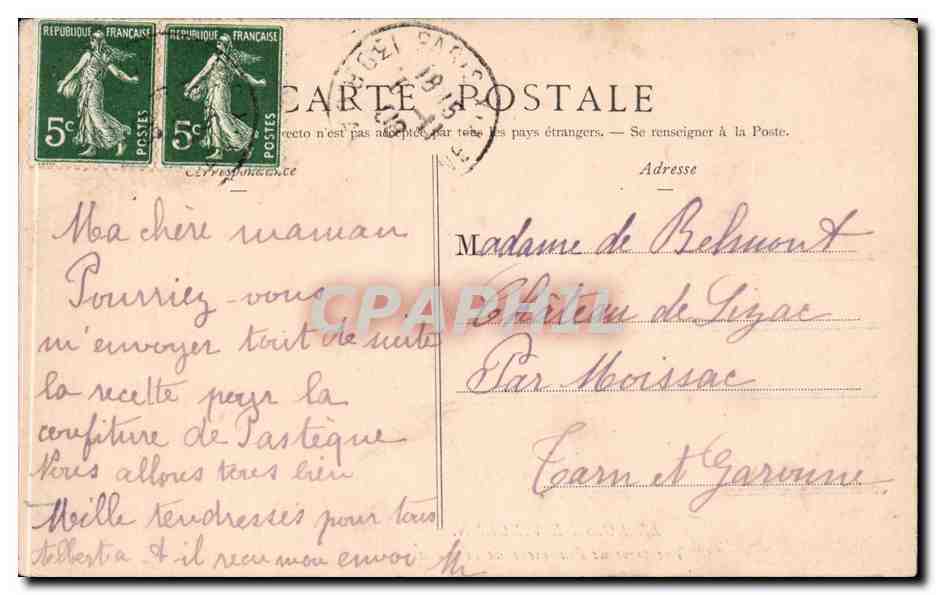 REPUBLIQUE FRANÇAISE
5c
POSTES
REPUBLIQUE FRANÇAISE
5c
POSTES
CARTE POSTALE
recto n'est pas acceptée par tous les pays étrangers. — Se renseigner à la Poste.
Correspondance
Ma chère maman
Pourriez-vous
m'envoyer tout de suite
la recette pour la
confiture de Pastèque
Nous allons tous bien
Mille tendresses pour tous
Albert a t il recu mon envoi
M
Adresse
Madame de Belmont
Château de Lizac
Par Moissac
Tarn et Garonne
CPAPHIL